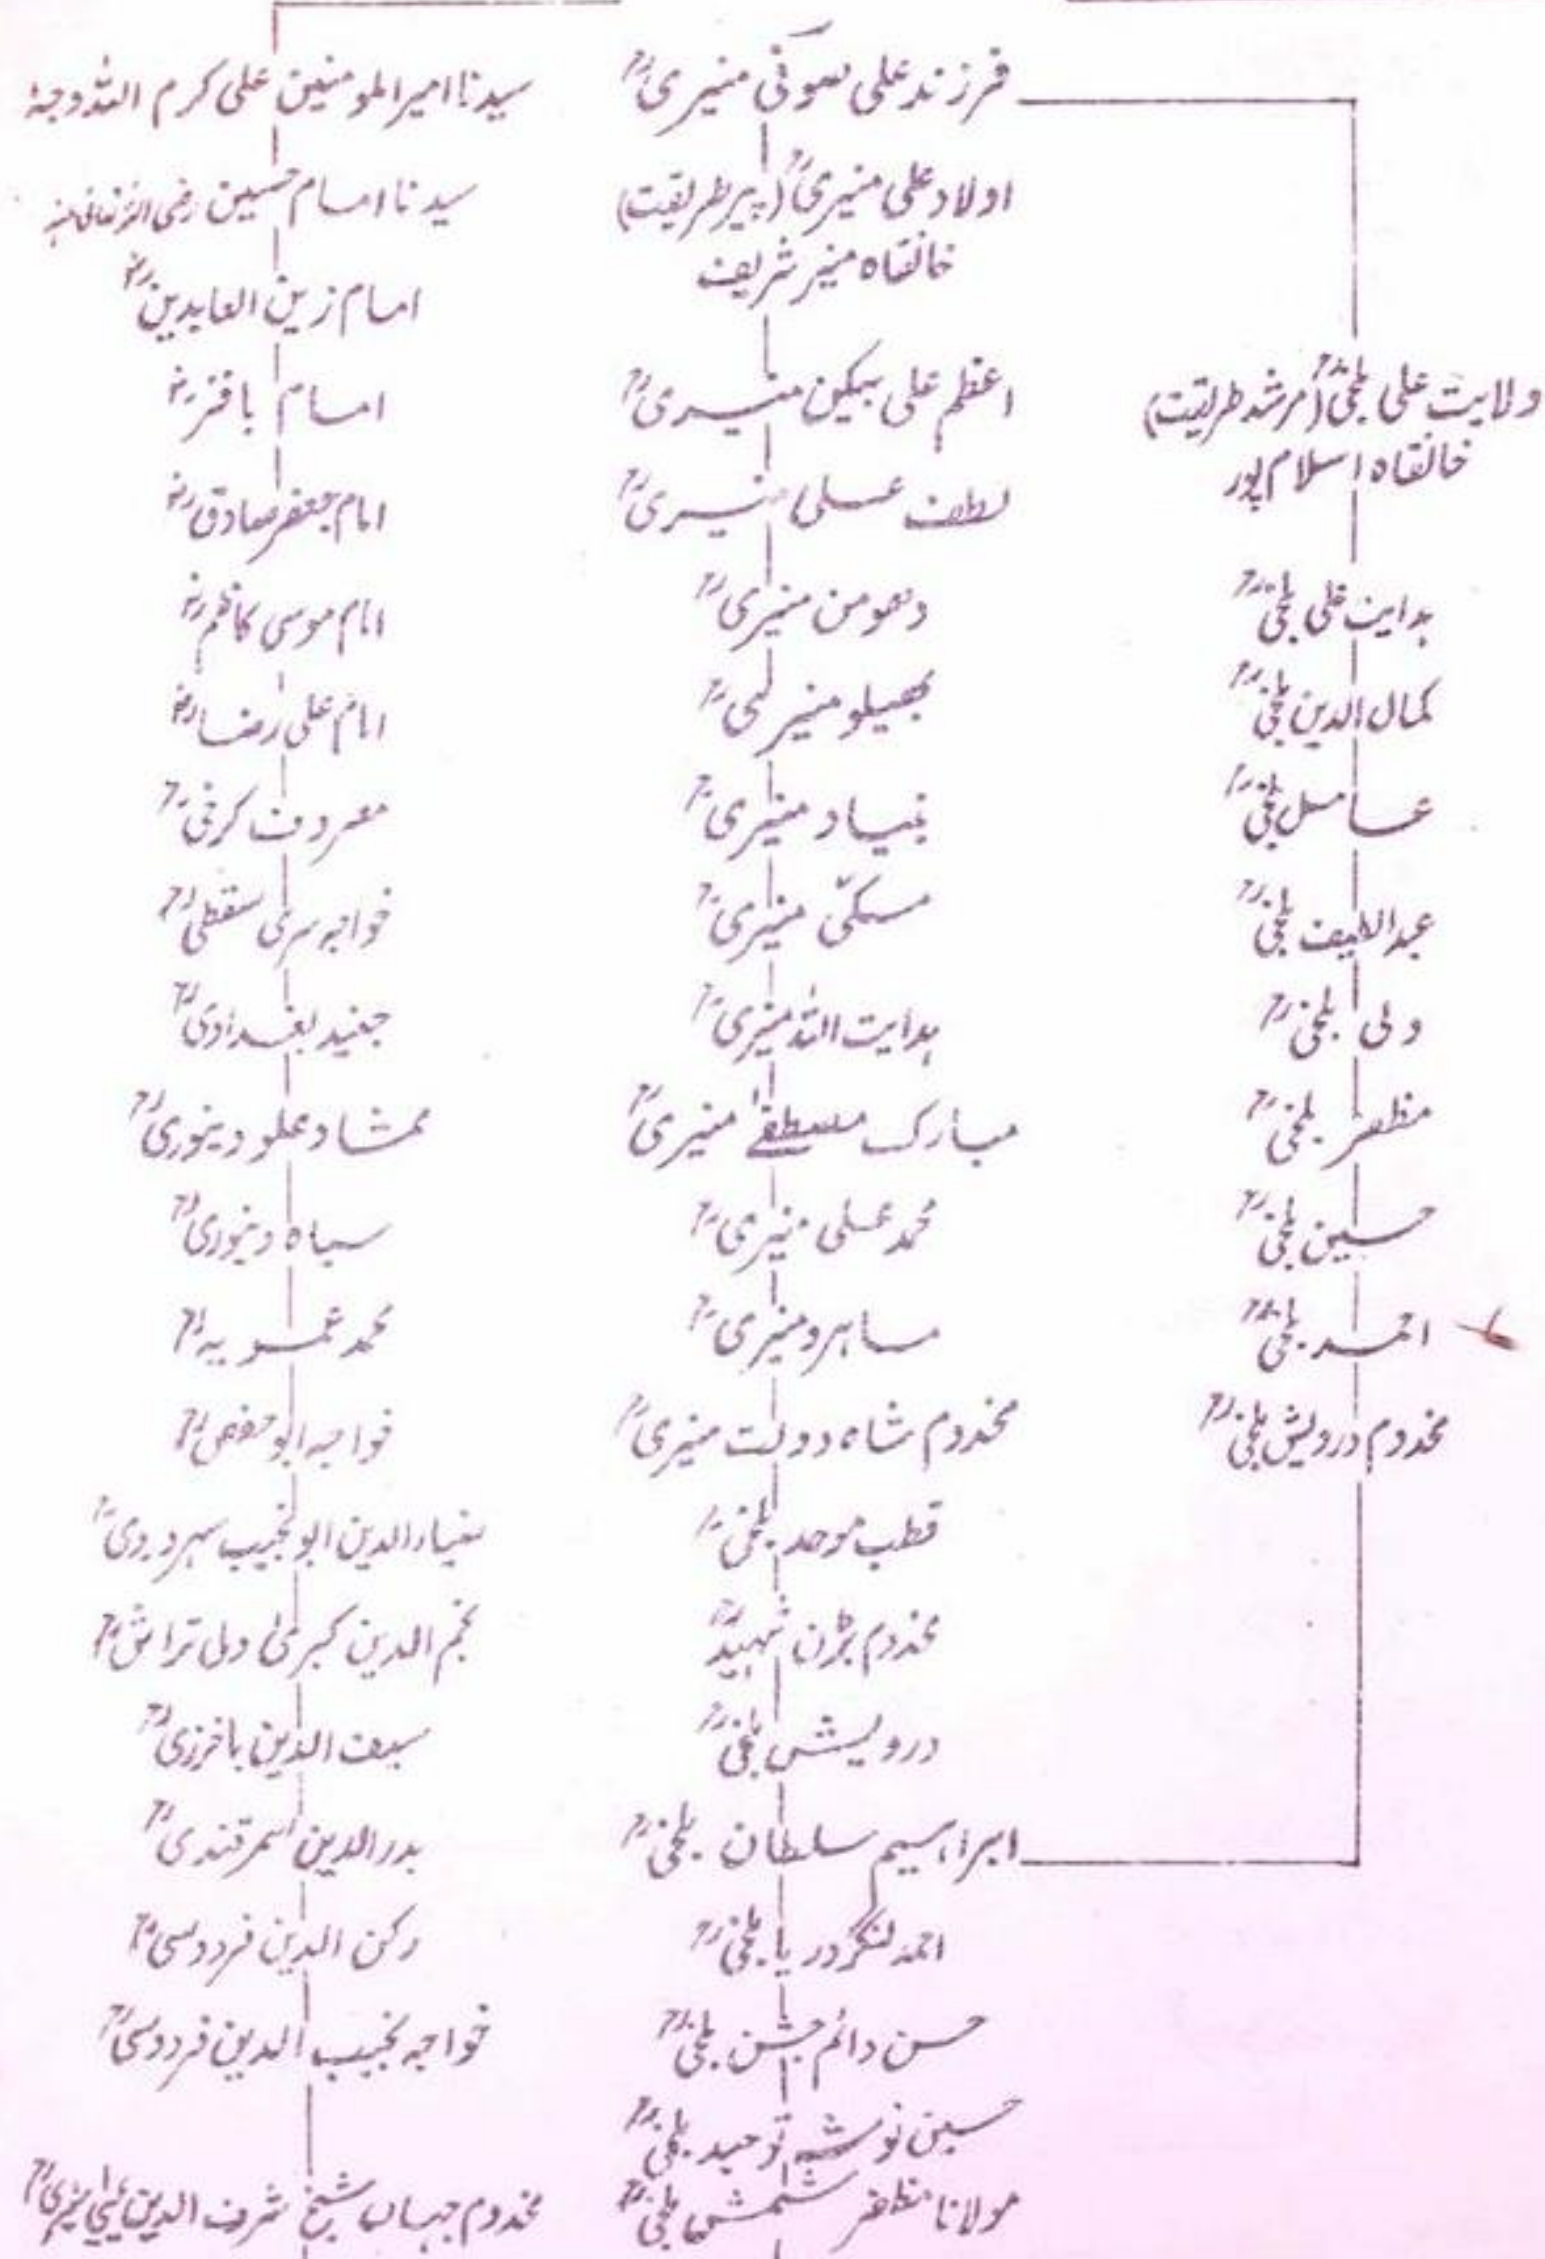 ولایت علی بلخیؒ (مرشد طریقت)
خانقاہ اسلام پور
ہدایت علی بلخیؒ
کمال الدین بلخیؒ
عامل بلخیؒ
عبداللطیف بلخیؒ
ولی بلخیؒ
مظفر بلخیؒ
حسین بلخیؒ
احمد بلخیؒ
مخدوم درویش بلخیؒ
فرزند علی صوفی منیریؒ
اولاد علی منیریؒ (پیر طریقت)
خانقاہ منیر شریف
اعظم علی بیکن منیریؒ
لطف علی منیریؒ
دھومن منیریؒ
بھیلو منیریؒ
بنیاد منیریؒ
مکی منیریؒ
ہدایت اللہ منیریؒ
مبارک مصطفےٰ منیریؒ
محمد علی منیریؒ
ماہرو منیریؒ
مخدوم شاہ دولت منیریؒ
قطب موحد بلخیؒ
مخدوم بڑن شہیدؒ
درویش بلخیؒ
ابراہیم سلطان بلخیؒ
احمد لنگر دریا بلخیؒ
حسن دائم جشن بلخیؒ
حسین نوشہ توحید بلخیؒ
مولانا مظفر شمس بلخیؒ
سیدنا امیر المومنین علی کرم اللہ وجہہ
سیدنا امام حسین رضی اللہ تعالیٰ عنہ
امام زین العابدینؓ
امام باقرؓ
امام جعفر صادقؓ
امام موسی کاظمؓ
امام علی رضاؓ
معروف کرخیؒ
خواجہ سری سقطیؒ
جنید بغدادیؒ
ممشاد علو دینوریؒ
سیاہ دینوریؒ
محمد عمویہؒ
خواجہ ابو حفصؒ
ضیاء الدین ابو نجیب سہروردیؒ
نجم الدین کبریٰ ولی تراشؒ
سیف الدین باخرزیؒ
بدر الدین سمرقندیؒ
رکن الدین فردوسیؒ
خواجہ نجیب الدین فردوسیؒ
مخدوم جہاں شیخ شرف الدین یحییٰ منیریؒ